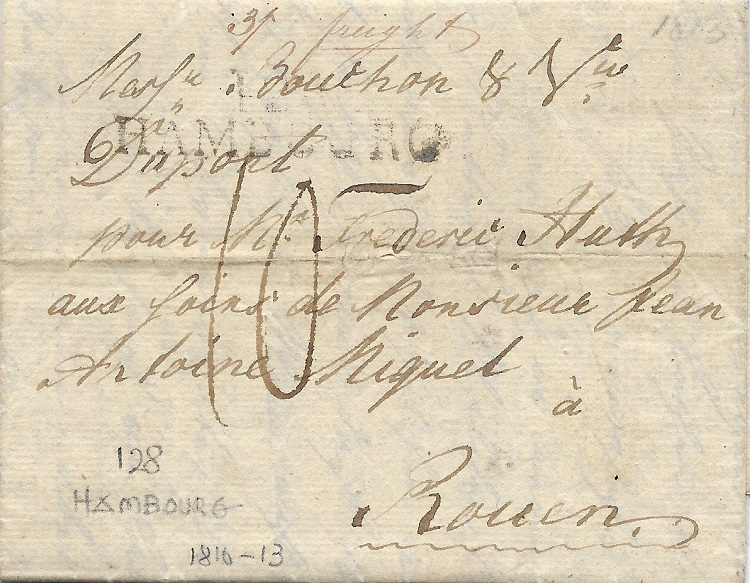 3/ freight 1813
Messrs. Bouthon & Vve
HAMBOURG
Dupont
10
pour Mr. Frederic Huth
aux soins de Monsieur Jean
Antoine Miguel
à
Rouen
128
HAMBOURG
1810-13